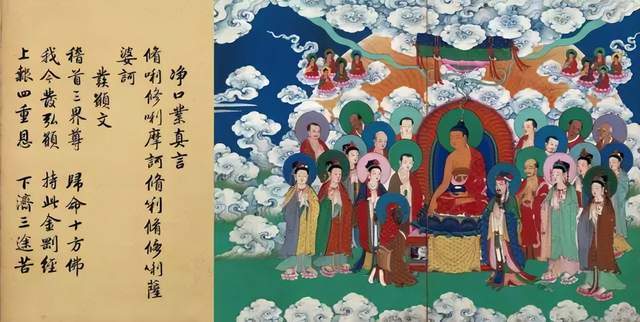 净口業真言
脩唎修唎摩訶脩利脩修唎薩
婆訶
發願文
稽首三界尊　歸命十方佛
我今發弘願　持此金剛經
上報四重恩　下濟三途苦